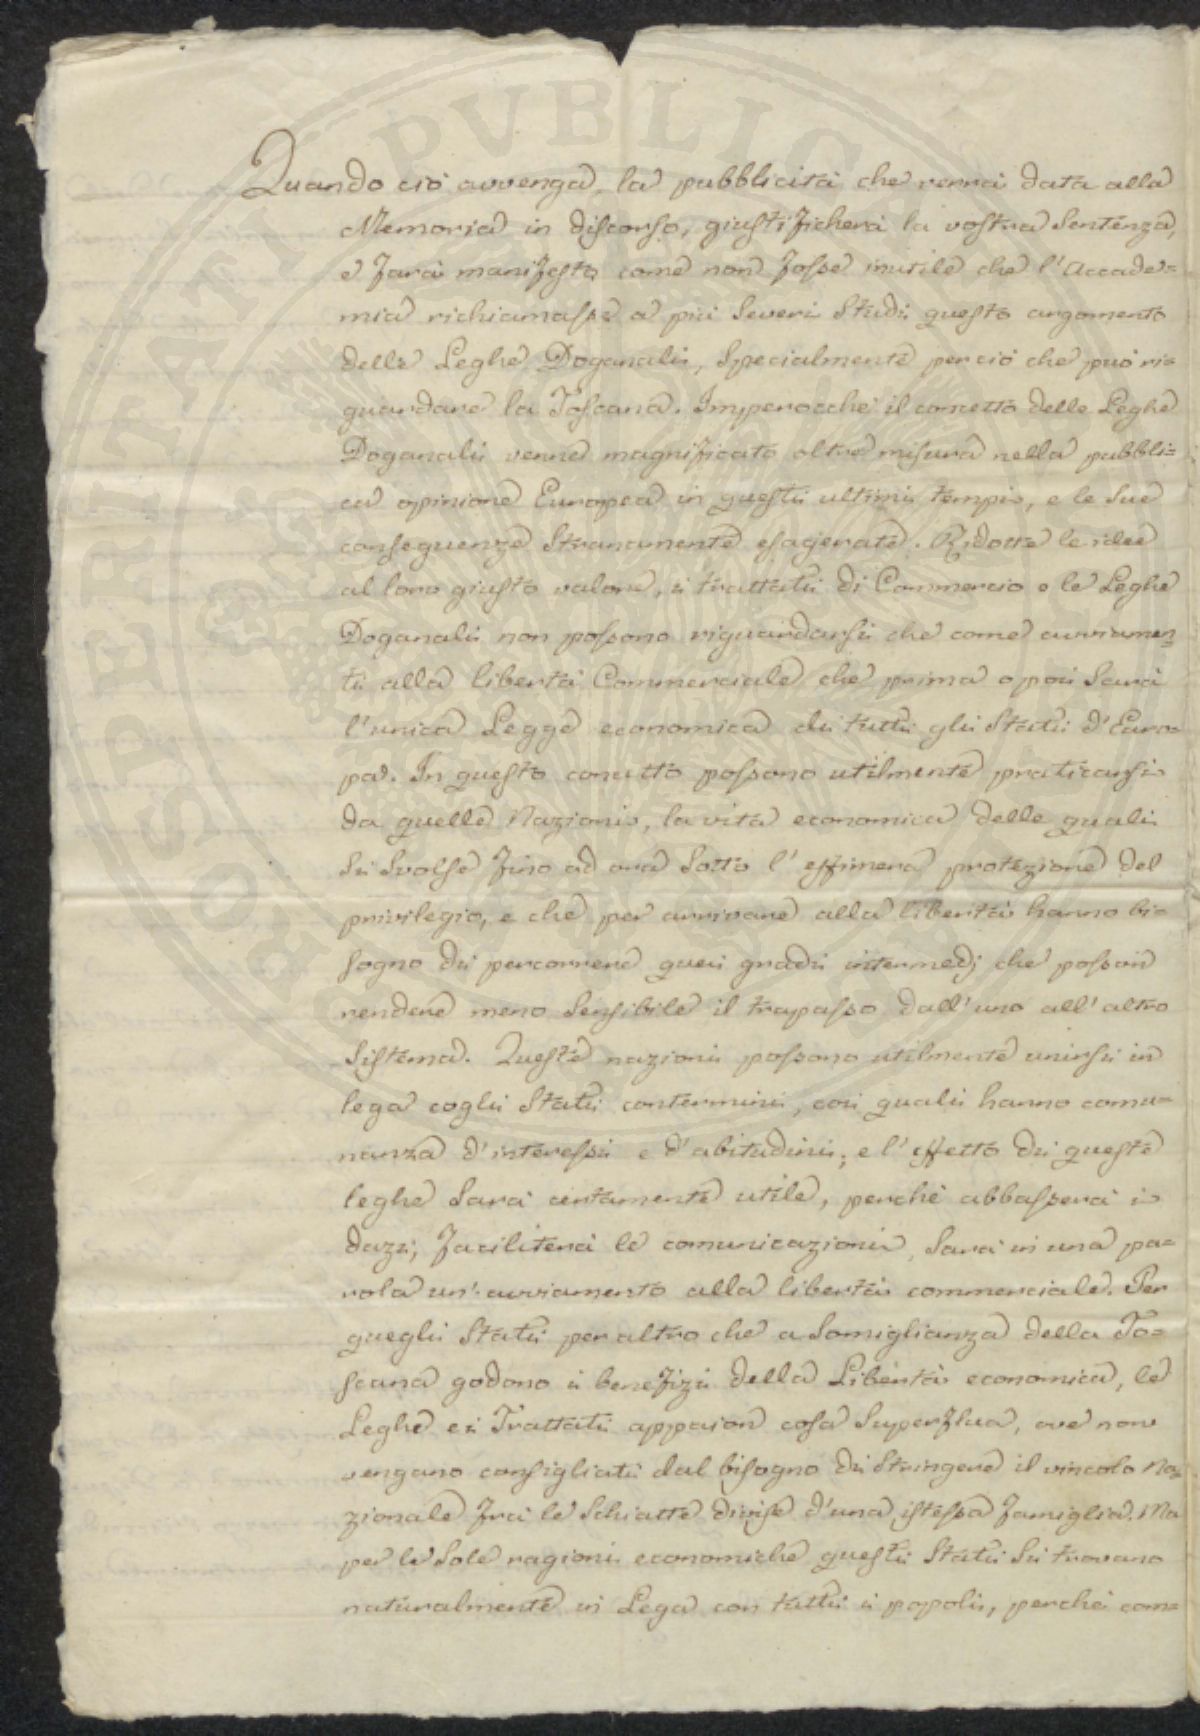 Quando ciò avvenga, la pubblicità che verrà data alla
Memoria in discorso, giustificherà la vostra Sentenza,
e farà manifesto come non fosse inutile che l'Accade=
mia richiamasse a più Severi Studii questo argomento
delle Leghe Doganali, Specialmente per ciò che può ri=
guardare la Toscana. Imperocchè il concetto delle Leghe
Doganali venne magnificato oltre misura nella pubbli=
ca opinione Europea in questi ultimi tempi, e le Sue
conseguenze Stranamente esagerate. Ridotte le idee
al loro giusto valore, i trattati di Commercio e le Leghe
Doganali non possono riguardarsi che come avviamen=
ti alla libertà Commerciale che prima o poi Sarà
l'unica Legge economica di tutti gli Stati d'Euro=
pa. In questo concetto possono utilmente praticarsi
da quelle Nazioni, la vita economica delle quali
Si Svolse fino ad ora Sotto l'effimera protezione del
privilegio, e che per arrivare alla libertà hanno bi=
sogno di percorrere quei gradi intermedj che posson
rendere meno Sensibile il trapasso dall'uno all'altro
Sistema. Queste nazioni possono utilmente unirsi in
lega cogli Stati contermini, coi quali hanno comu=
nanza d'interessi e d'abitudini; e l'effetto di queste
leghe Sarà certamente utile, perchè abbasserà i
dazi, faciliterà le comunicazioni, Sarà in una pa=
rola un'avviamento alla libertà commerciale. Per
quegli Stati per altro che a Somiglianza della To=
scana godono i benefizi della Libertà economica, le
Leghe ei Trattati appaion cosa Superflua, ove non
vengano consigliati dal bisogno di Stringere il vincolo Na=
zionale fra le Schiatte divise d'una istessa famiglia. Ma
per le Sole ragioni economiche questi Stati Si trovano
naturalmente in Lega con tutti i popoli, perchè com=